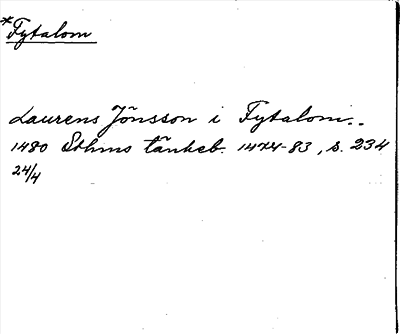 *Fytalom
Laurens Jönsson i Fytalom..
1480 Sthms tänkeb. 1474-83, s. 234
24/4